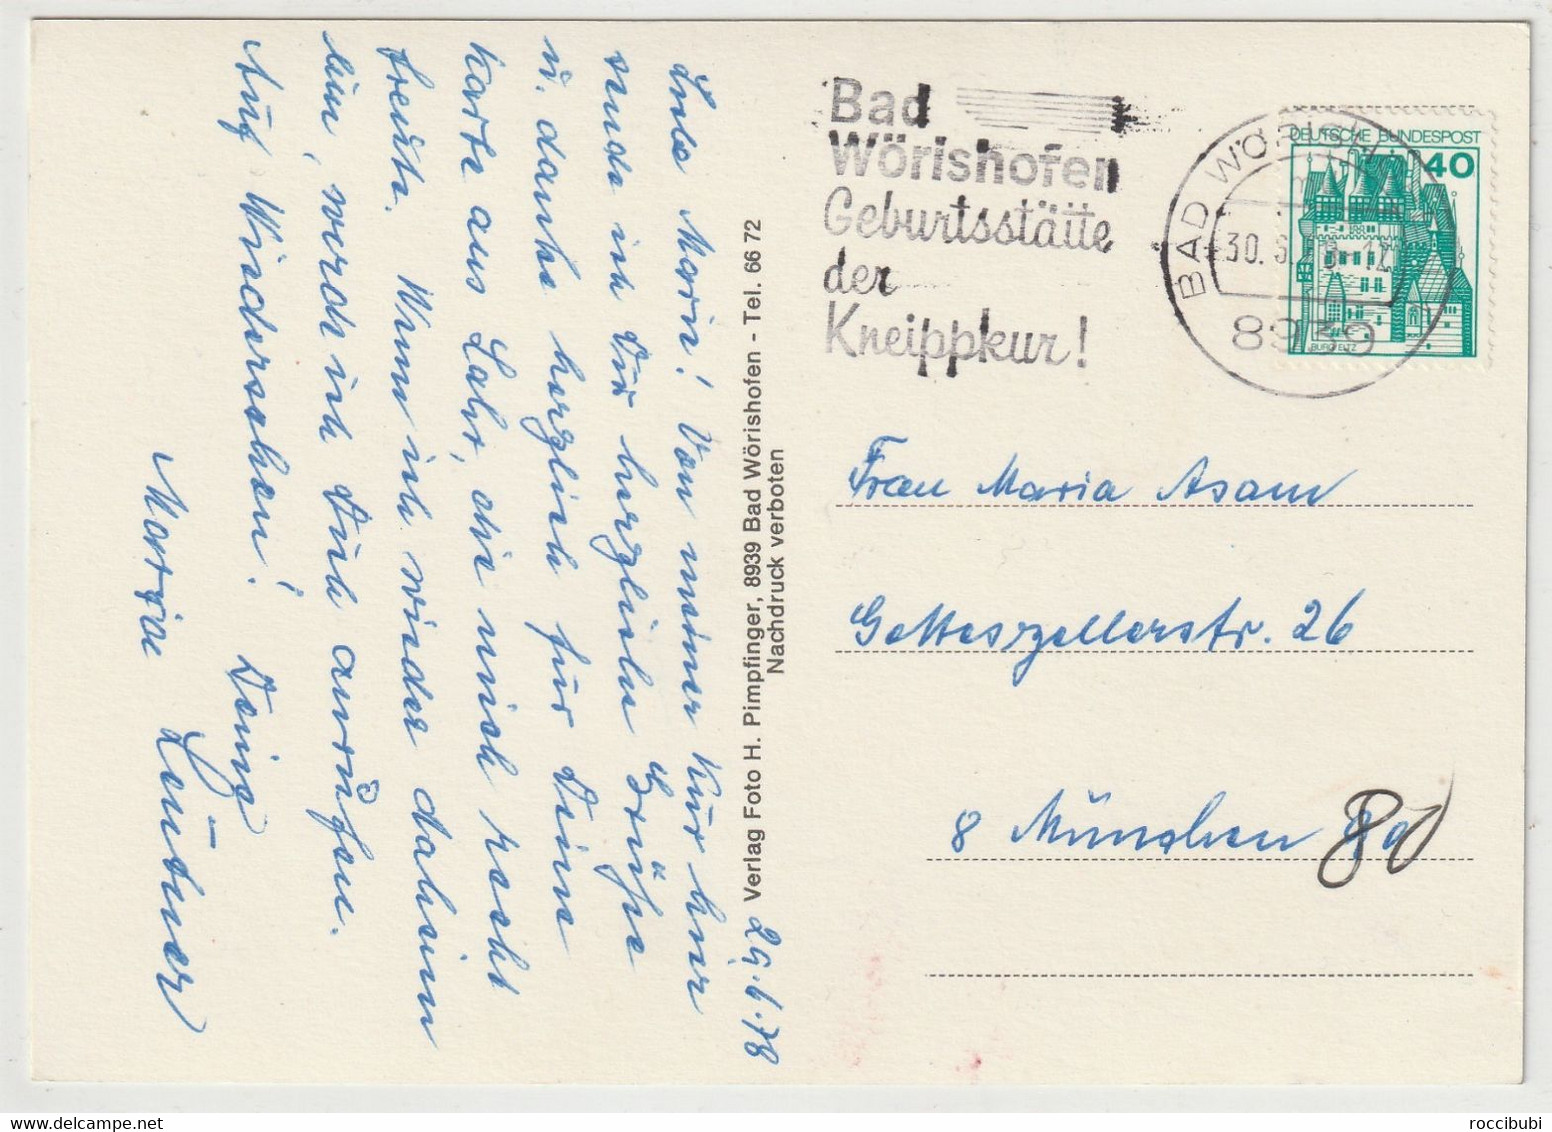 29.6.78
Liebe Maria! Von meiner Kur hier
sende ich Dir herzliche Grüße
u. danke herzlich für Deine
Karte aus Lahr, die mich recht
freute. Wenn ich wieder daheim
bin, werde ich Dich anrufen.
Auf Wiedersehen! Deine
Maria Leutner
Verlag Foto H. Pimpfinger, 8939 Bad Wörishofen - Tel. 66 72
Nachdruck verboten
Bad
Wörishofen
Geburtsstätte
der
Kneippkur!
BAD WÖRISH
30. 6. 78 - 12
8939
DEUTSCHE BUNDESPOST
40
BURG ELTZ
Frau Maria Asam
Gotteszellerstr. 26
8 München 80
roccibubi